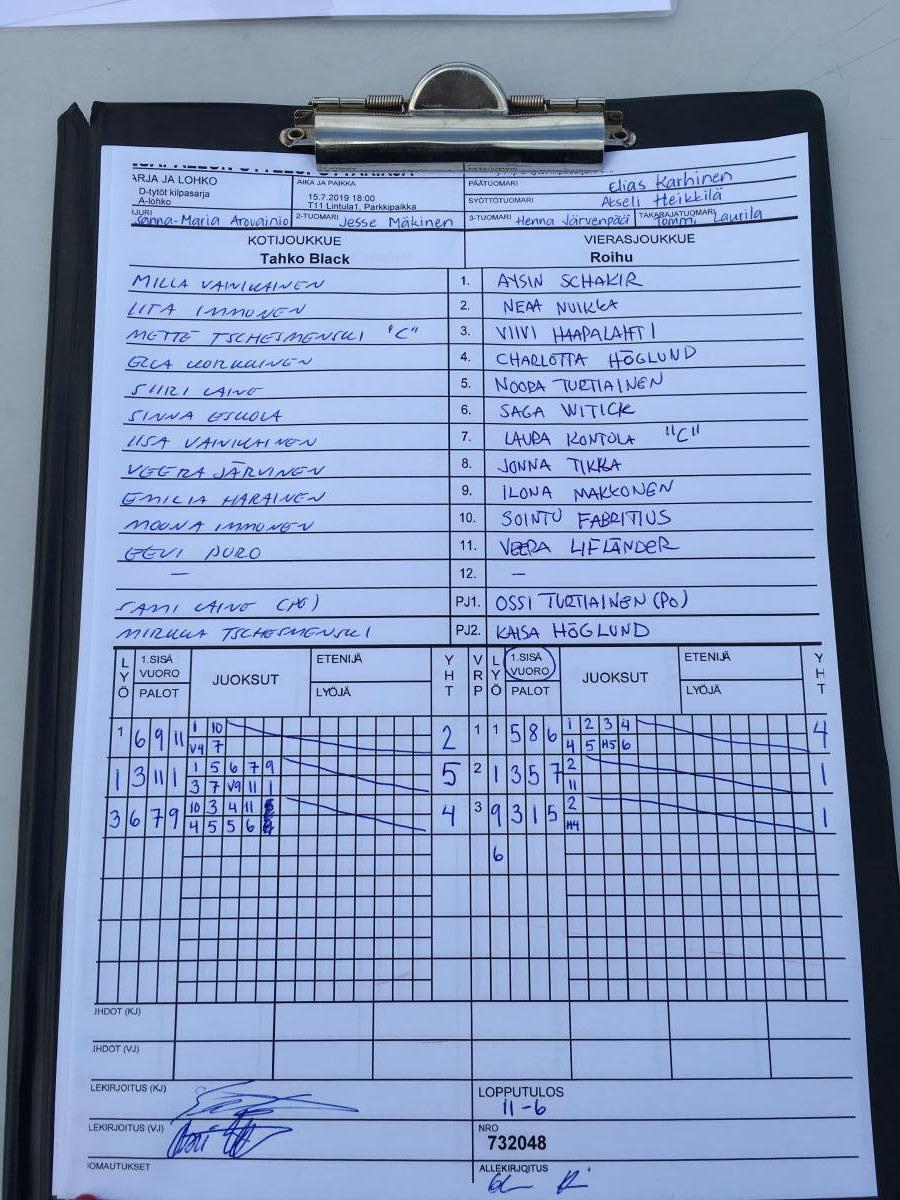 ARJA JA LOHKO
D-tytöt kilpasarja
A-lohko
AIKA JA PAIKKA
15.7.2019 18:00
T11 Lintula1, Parkkipaikka
PÄÄTUOMARI Elias Karhinen
SYÖTTÖTUOMARI Akseli Heikkilä
Sanna-Maria Arovainio 2-TUOMARI Jesse Mäkinen 3-TUOMARI Henna Järvenpää TAKARAJATUOMARI Tommi Laurila
KOTIJOUKKUE VIERASJOUKKUE
Tahko Black Roihu
MILLA VAINIKAINEN 1. AYSIN SCHAKIR
IITA IMMONEN 2. NEAA NUIKKA
METTE TSCHESMENSKI "C" 3. VIIVI HAAPALAHTI
ELLA KORKKINEN 4. CHARLOTTA HÖGLUND
SIIRI LAINE 5. NOORA TURTIAINEN
SINNA ESKOLA 6. SAGA WITICK
IISA VAINIKAINEN 7. LAURA KONTOLA "C"
VEERA JÄRVINEN 8. JONNA TIKKA
EMILIA HARAINEN 9. ILONA MAKKONEN
MOONA IMMONEN 10. SOINTU FABRITIUS
EEVI PURO 11. VEERA LIFLÄNDER
— 12. —
SAMI LAINE PJ1. OSSI TURTIAINEN (PO)
MIRKKA TSCHESMENSKI PJ2. KAISA HÖGLUND
LYÖ 1.SISÄ VUORO PALOT JUOKSUT ETENIJÄ LYÖJÄ YHT VRP LYÖ 1.SISÄ VUORO PALOT JUOKSUT ETENIJÄ LYÖJÄ YHT
1 6 9 11 1 10 2 1 1 5 8 6 1 2 3 4 4
V4 7 4 5 H5 6
1 3 11 1 1 5 6 7 9 5 2 1 3 5 7 2 1
3 7 V9 11 1 11
3 6 7 9 10 3 4 11 4 3 9 3 1 5 2 1
4 5 5 6 H4
6
JHDOT (KJ)
JHDOT (VJ)
LEKIRJOITUS (KJ) LOPPUTULOS
11-6
LEKIRJOITUS (VJ) NRO
732048
OMAUTUKSET ALLEKIRJOITUS